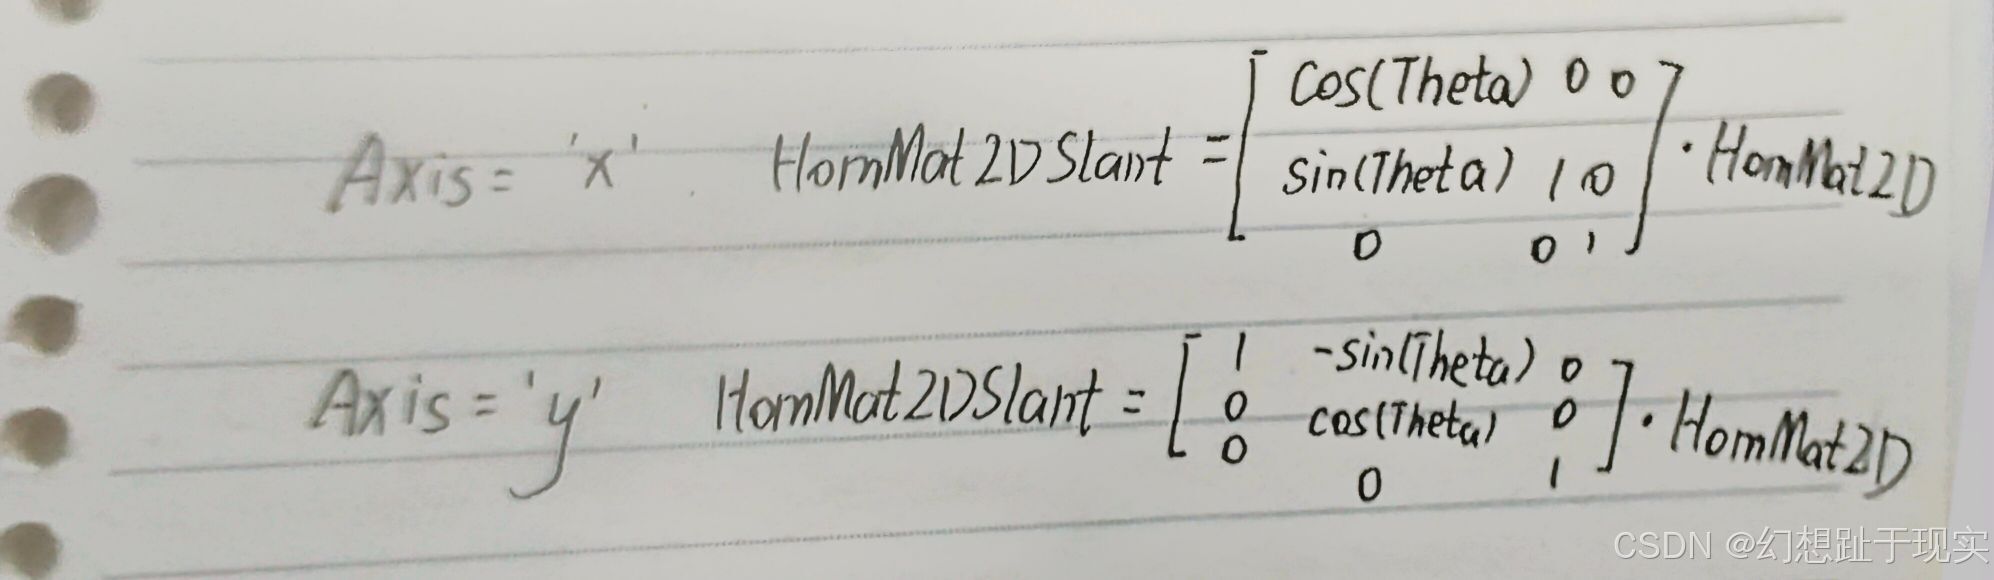 Axis = 'x' HomMat2DSlant = [ cos(Theta) 0 0
sin(Theta) 1 0
0 0 1 ] · HomMat2D
Axis = 'y' HomMat2DSlant = [ 1 -sin(Theta) 0
0 cos(Theta) 0
0 0 1 ] · HomMat2D
CSDN @幻想趾于现实